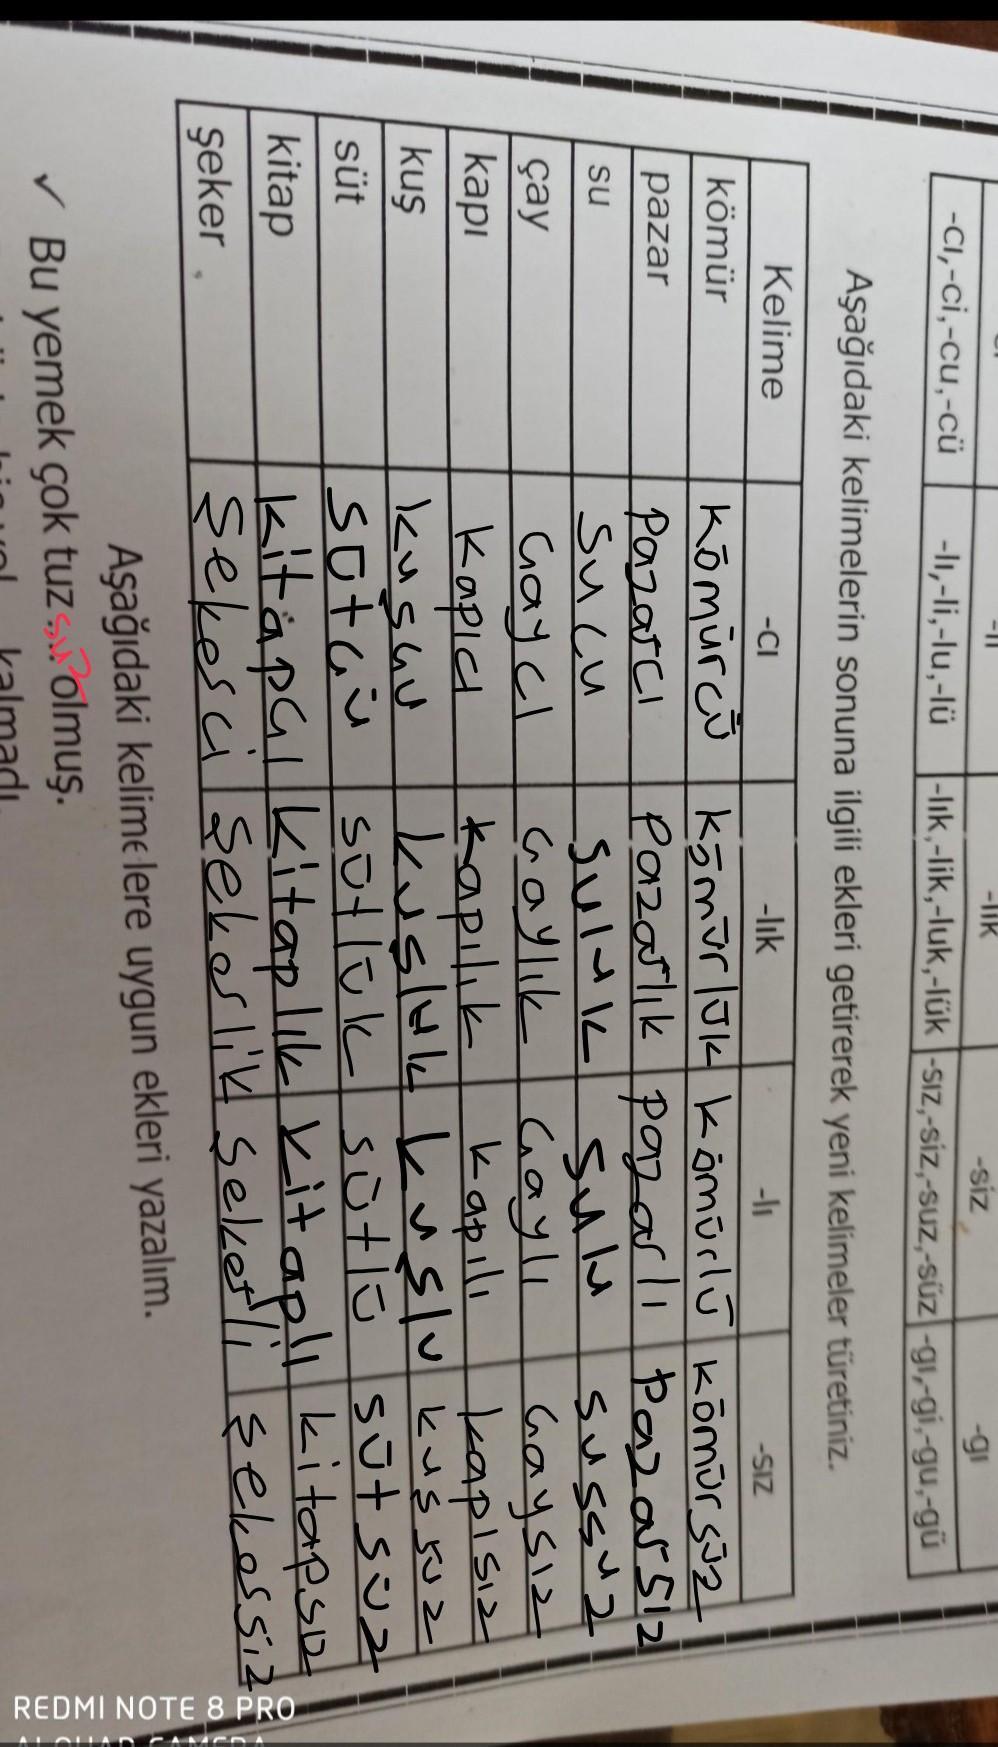 -lı -lık -siz -gı
-cı,-ci,-cu,-cü -lı,-li,-lu,-lü -lık,-lik,-luk,-lük -sız,-siz,-suz,-süz -gı,-gi,-gu,-gü
Aşağıdaki kelimelerin sonuna ilgili ekleri getirerek yeni kelimeler türetiniz.
Kelime -cı -lık -lı -sız
kömür kömürcü kömürlük kömürlü kömürsüz
pazar pazarcı pazarlık pazarlı pazarsız
su sucu suluk sulu sussuz
çay çaycı çaylık çaylı çaysız
kapı kapıcı kapılık kapılı kapısız
kuş kuşçu kuşluk kuşlu kuşsuz
süt sütçü sütlük sütlü sütsüz
kitap kitapçı kitaplık kitaplı kitapsız
şeker şekerci şekerlik şekerli şekersiz
Aşağıdaki kelimelere uygun ekleri yazalım.
✓ Bu yemek çok tuz suz olmuş.
kalmadı.
REDMI NOTE 8 PRO
AI QUAD CAMERA